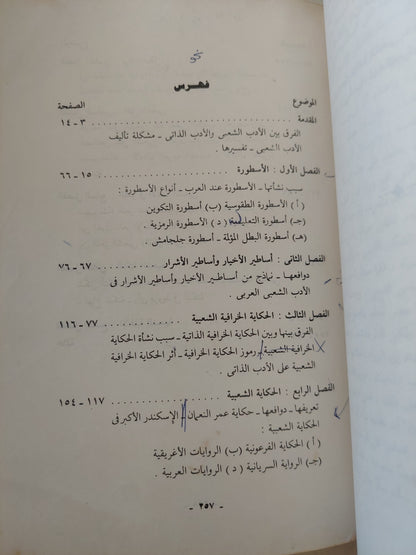 نحو
فهرس
الموضوع الصفحة
المقدمة . . . . . . . . . . ٣ - ١٤
الفرق بين الأدب الشعبى والأدب الذاتى - مشكلة تأليف
الأدب الشعبى - تفسيرها .
الفصل الأول : الأسطورة . . . . . . . ١٥ - ٦٦
سبب نشأتها - الأسطورة عند العرب - أنواع الأسطورة :
(أ) الأسطورة الطقوسية (ب) أسطورة التكوين
(جـ) أسطورة التعليلية (د) الأسطورة الرمزية .
(هـ) أسطورة البطل المؤلة - أسطورة جلجامش .
الفصل الثانى : أساطير الأخيار وأساطير الأشرار ٦٧ - ٧٦
دوافعها - نماذج من أساطير الأخيار وأساطير الأشرار فى
الأدب الشعبى العربى .
الفصل الثالث : الحكاية الخرافية الشعبية . . . . ٧٧ - ١١٦
الفرق بينها وبين الحكاية الخرافية الذاتية - سبب نشأة الحكاية
الخرافية الشعبية / رموز الحكاية الخرافية - أثر الحكاية الخرافية
الشعبية على الأدب الذاتى .
الفصل الرابع : الحكاية الشعبية . . . . . ١١٧ - ١٥٤
تعريفها - دوافعها - حكاية عمر النعمان - الإسكندر الأكبر فى
الحكاية الشعبية :
(أ) الحكاية الفرعونية (ب) الروايات الأغريقية
(جـ) الرواية السريانية (د) الروايات العربية .
- ٢٥٧ -